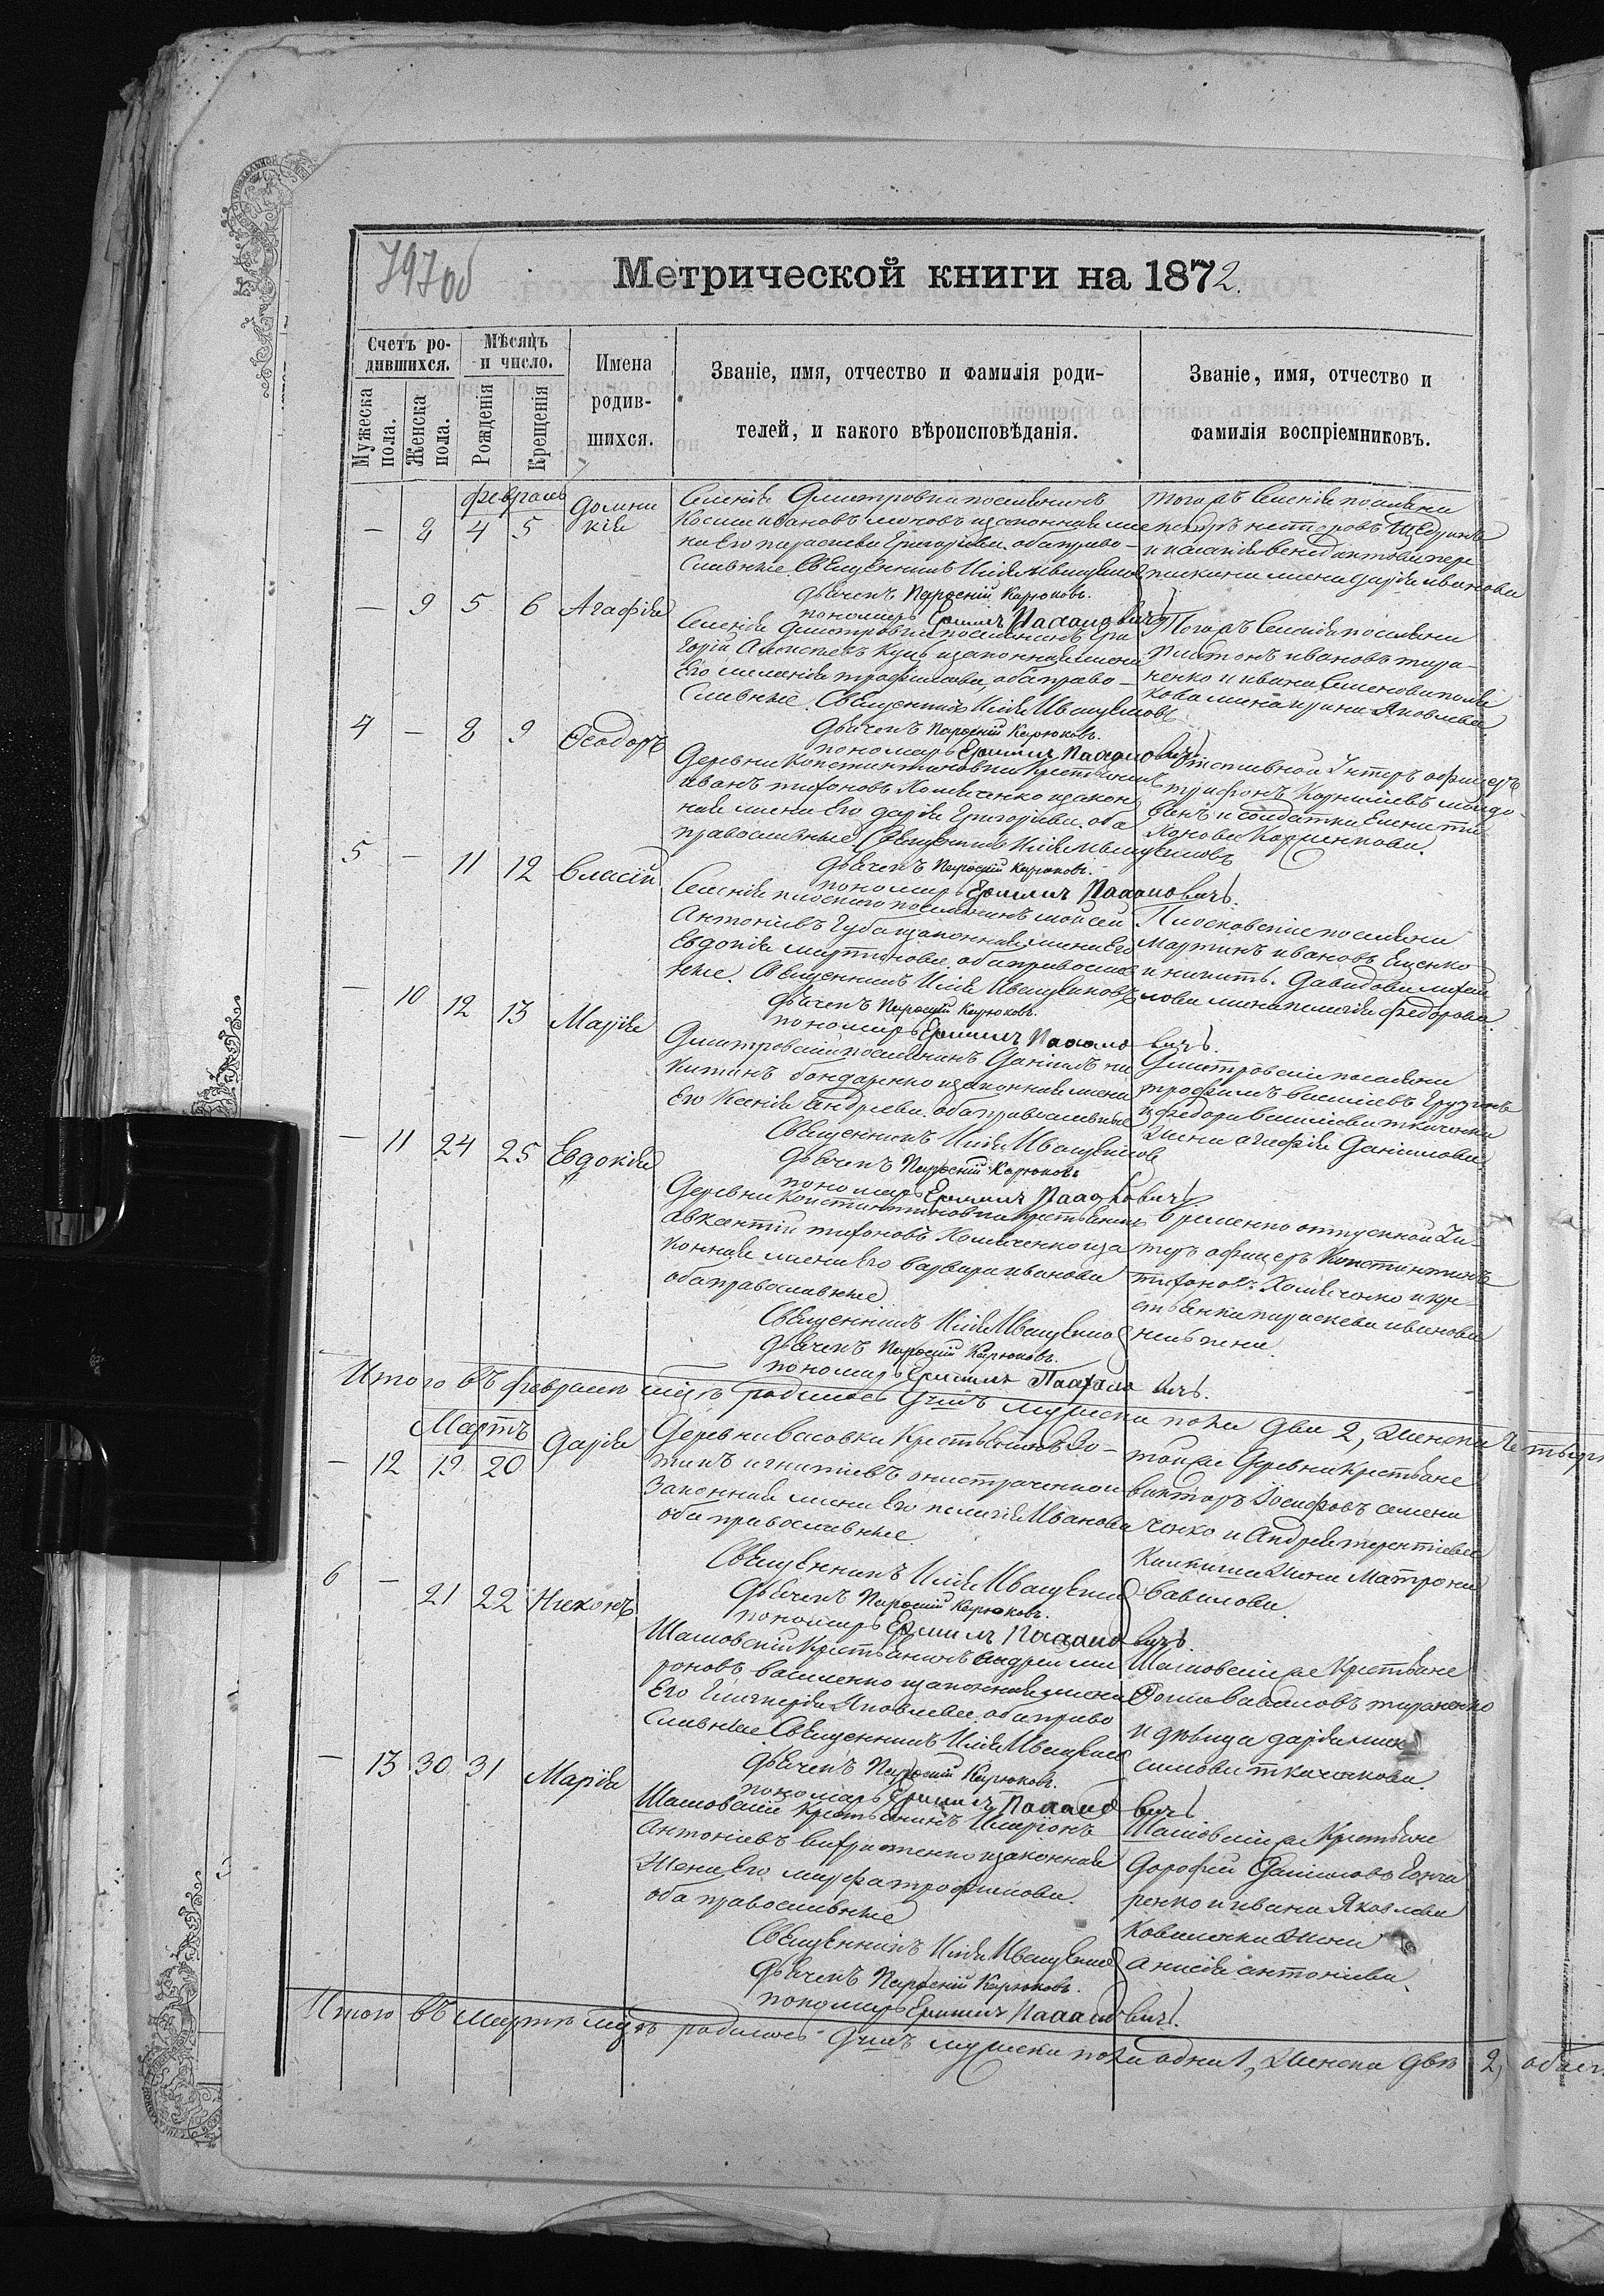 797об
Метрической книги на 1872.
Счетъ ро-
дившихся.
Мѣсяцъ
и число.
Мужеска
пола.
Женска
пола.
Рожденія
Крещенія
Имена
родив-
шихся.
Званіе, имя, отчество и фамилія роди-
телей, и какого вѣроисповѣданія.
Званіе, имя, отчество и
фамилія воспріемниковъ.
февраль
— 8 4 5 Домни
кія
Селенія Дмитровки поселянинъ
Косма ивановъ законная же
на Его параскева Григоріева оба право-
славные. Священникъ Илія Иващенков
Дьячекъ Пароеній Карюковъ.
пономарь Ермилъ Палаловичъ
Тогожъ Селенія поселяни
несторовъ Щедринъ
и
жена дарія иванова
— 9 5 6 Агафія
Селенія Дмитровки поселянинъ Гри
горій Алексіевъ Куць изаконная жена
Его меланія трофимова, оба право-
Славные. Священникъ Илія Иващенковъ
Дьячекъ Пароеній Карюковъ.
пономарь Ермилъ Палаловичъ
Тогожъ Селенія поселяни
Платонъ ивановъ тара-
ненко и ивана Семенова поля
кова жена ирина Яковлева
4 — 8 9 Ѳеодоръ
Деревни Константиновки Крестьянинъ
иванъ тихоновъ Хомиченко изакон
ная жена Его дарія Григоріева. оба
православные Священникъ Илія Иващенковъ
Дьячекъ Пароеній Карюковъ.
пономарь Ермилъ Палаловичъ.
отставной Унтеръ офицеръ
трифонъ Корніиевъ молдо-
ванъ и солдатка Елена ти
хонова Корніенкова.
5 — 11 12 Власій
Селенія плоского поселянинъ моисей
Антоніевъ Губа изаконная жена Его
Евдокія мартинова, оба православ
ные. Священникъ Илія Иващенковъ
Дьячекъ Пароеній Карюковъ.
пономарь Ермилъ Палаловичъ.
Плосковскіе поселяни
мартинъ ивановъ Еценко
и никита Давидова михай
лова жена пелагія федорова.
— 10 12 13 Марія
Дмитровскій поселянинъ Даніилъ ни
китинъ бондаренко изаконная жена
Его Ксенія Андреева, оба православные
Священникъ Илія Иващенков
Дьячекъ Пароеній Карюковъ
пономарь Ермилъ Палаловичъ
Дмитровскіе поселяни
трофимъ василіевъ Грузинъ
и федора василіева ткаченка
жена агафія Даніилова
— 11 24 25 Евдокія
Деревни Константиновки крестьянинъ
авксентій тихоновъ Хомиченко иза
конная жена Его варвара иванова
оба православные
Священникъ Илія Иващенков
Дьячекъ Пароеній Карюковъ.
пономарь Ермилъ Палаловичъ.
временно отпускной Ун-
теръ офицеръ Константинъ
тихоновъ Хомиченко и кре-
стьянка параскева иванова

Итого въ февралѣ мцѣ родилось душъ мужеска пола два 2, женска четыре
Мартъ
— 12 19 20 Дарія
Деревни васовки Крестьянинъ Зо-
тикъ игнатіевъ онистраченко и
законная жена Его пелагія Иванова
оба православные
Священникъ Илія Иващенков
Дьячекъ Пароеній Карюковъ.
пономарь Ермилъ Палаловичъ.
тойже Деревни крестьяне
викторъ Іосифовъ семени
ченко и Андрея терентіева
жена Матрона
вавилова.
6 — 21 22 Никонъ
Шамовскій Крестьянинъ андрей ми
роновъ василенко изаконная жена
Его Гликерія Яковлева, оба право
славные. Священникъ Илія Иващенков
Дьячекъ Пароеній Карюковъ.
пономарь Ермилъ Палаловичъ
Шамовскіе Крестьяне
Ѳома вавиловъ тараненко
и дѣвица дарія мак
симова ткаченкова.
— 13 30 31 Марія
Шамовскій Крестьянинъ Иларіонъ
Антоніевъ изаконная
Жена Его марфа трофимова.
оба православные
Священникъ Илія Иващенков
Дьячекъ Пароеній Карюковъ.
пономарь Ермилъ Палаловичъ.
Шамовскіе Крестьяне
Дорофей Даниловъ Гонча
ренко и ивана Яковлева
Коваленка жена
анисія антоніева.
Итого въ мартѣ мцѣ родилось душъ мужеска пола одна 1, Женска двѣ 2,